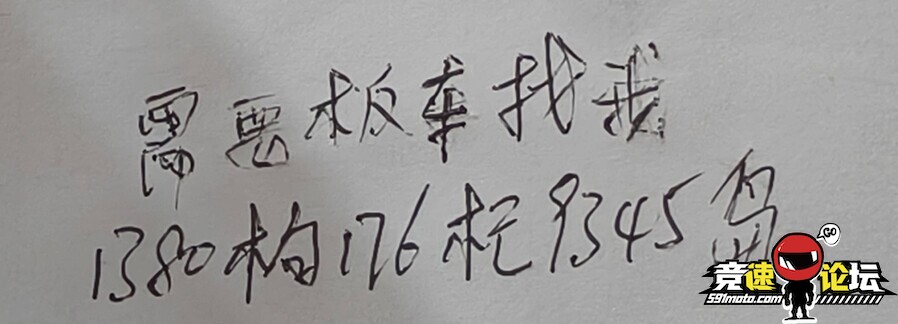 需要板车找我
1380柏176杧9345岛
GO
竞速论坛
591moto.com